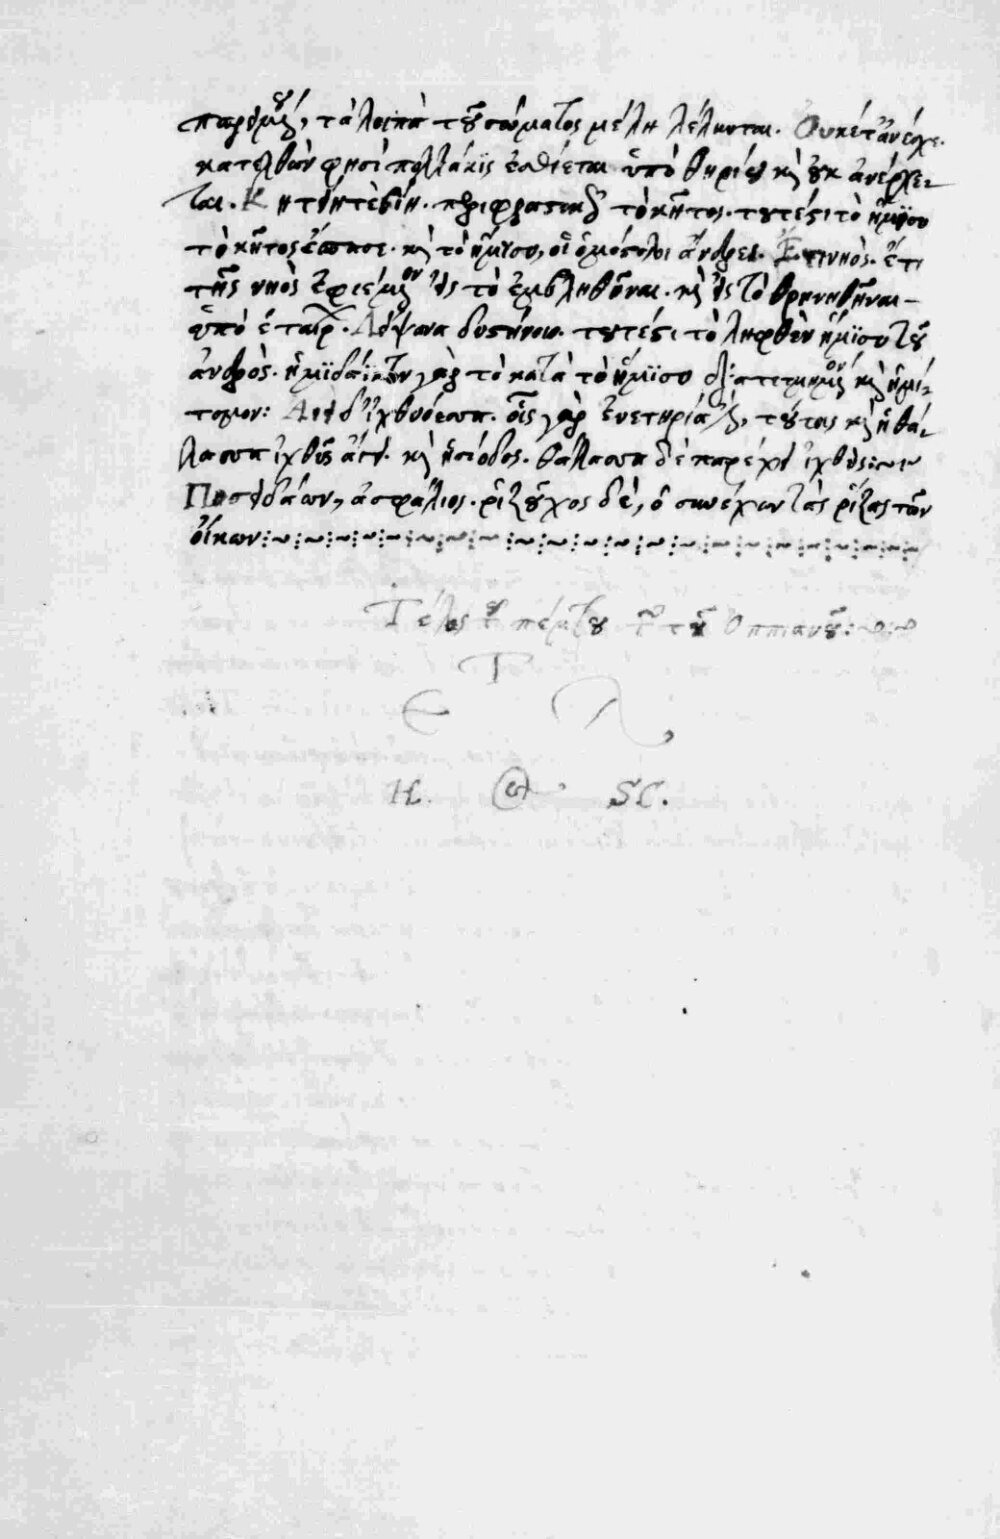 τὰ λοιπὰ τοῦ σώματος μέλη λέλυνται. Οὐκέτ' ἀνέσχε.
κατελθὼν φησὶ πολλάκις ἐσθίεται ὑπὸ θηρίου καὶ οὐκ ἀνέρχε-
ται. Κητείη τε βίη. περιφραστικῶς τὸ κῆτος. τουτέστι τὸ ἥμισυ
τὸ κῆτος ἔσπασε. καὶ τὸ ἥμισυ, οἱ ὁμόστολοι ἄνδρες. ἔτι
τῆς νηὸς ἐφιέμενον εἰς τὸ ἐμβληθῆναι. καὶ εἰς τὸ θρηνηθῆναι
ὑπὸ ἑταίρων. Λείψανα δυστήνου. τουτέστι τὸ ληφθὲν ἥμισυ τοῦ
ἀνδρὸς. ἡμιδάϊκτον γὰρ τὸ κατὰ τὸ ἥμισυ καὶ ἡμί-
τομον: δ' ἰχθυόεσσα. οἷς γὰρ ἐνετηρία τούτοις καὶ ἡ θά-
λασσα ἰχθῦς καὶ ἡσίοδος. θάλασσα δὲ παρέχει ἰχθῦς:~
Ποσειδάων, ἀσφάλιος. ῥιζοῦχος δὲ, ὁ συνέχων τὰς ῥίζας τῶν
οἴκων:~
Τέλος τοῦ πέμπτου τῶν τοῦ Ὀππιανοῦ:~
Τ
Ε Λ